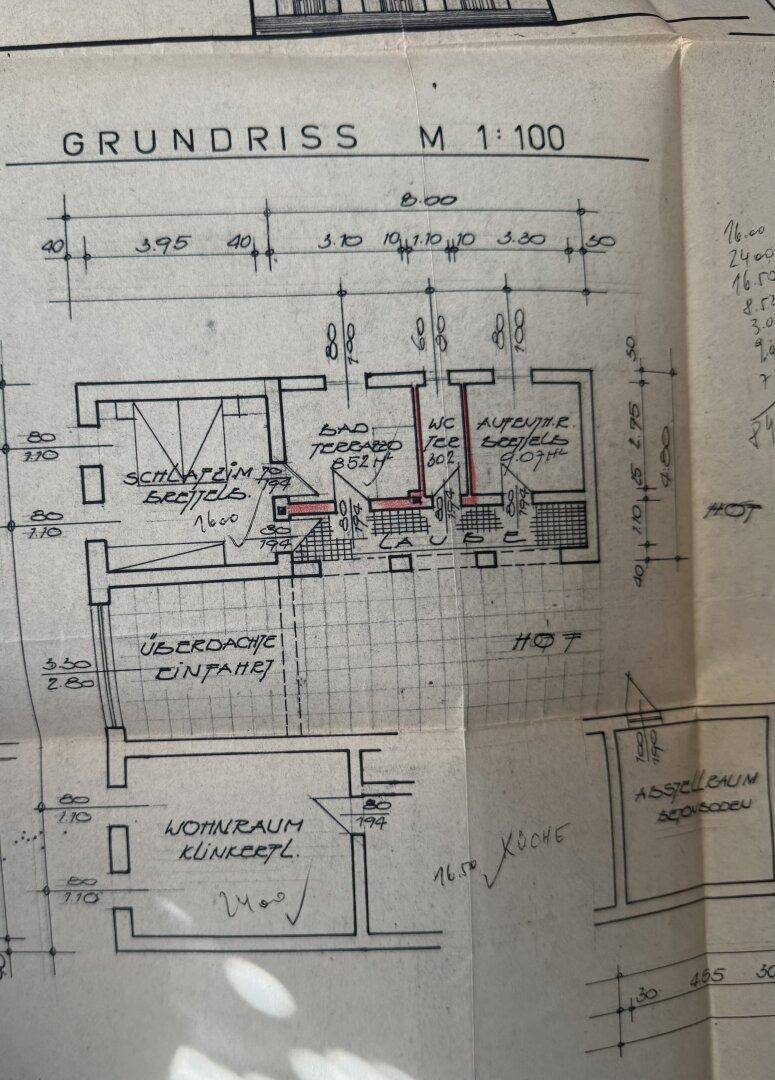 GRUNDRISS M 1:100
8.00
40 3.95 40 3.10 10 1.10 10 3.30 30
80
100
60
80
80
100
16.00
24.00
16.50
30
2.75
25
1.10
40
4.80
80
1.10
80
1.10
SCHLAFZIM
BRETTELB.
16.00
70
194
80
194
BAD
TERRAZZO
8.52 M²
WC
TER
3.02
AUFENTH.R.
BRETTELB
9.07 M²
80
194
80
194
80
194
LAUBE
HOF
ÜBERDACHTE
EINFAHRT
HOF
3.30
2.80
100
190
ABSTELLRAUM
BETONBODEN
80
1.10
WOHNRAUM
KLINKERTL.
80
194
24.00
16.50 KÜCHE
80
1.10
30 4.55 30